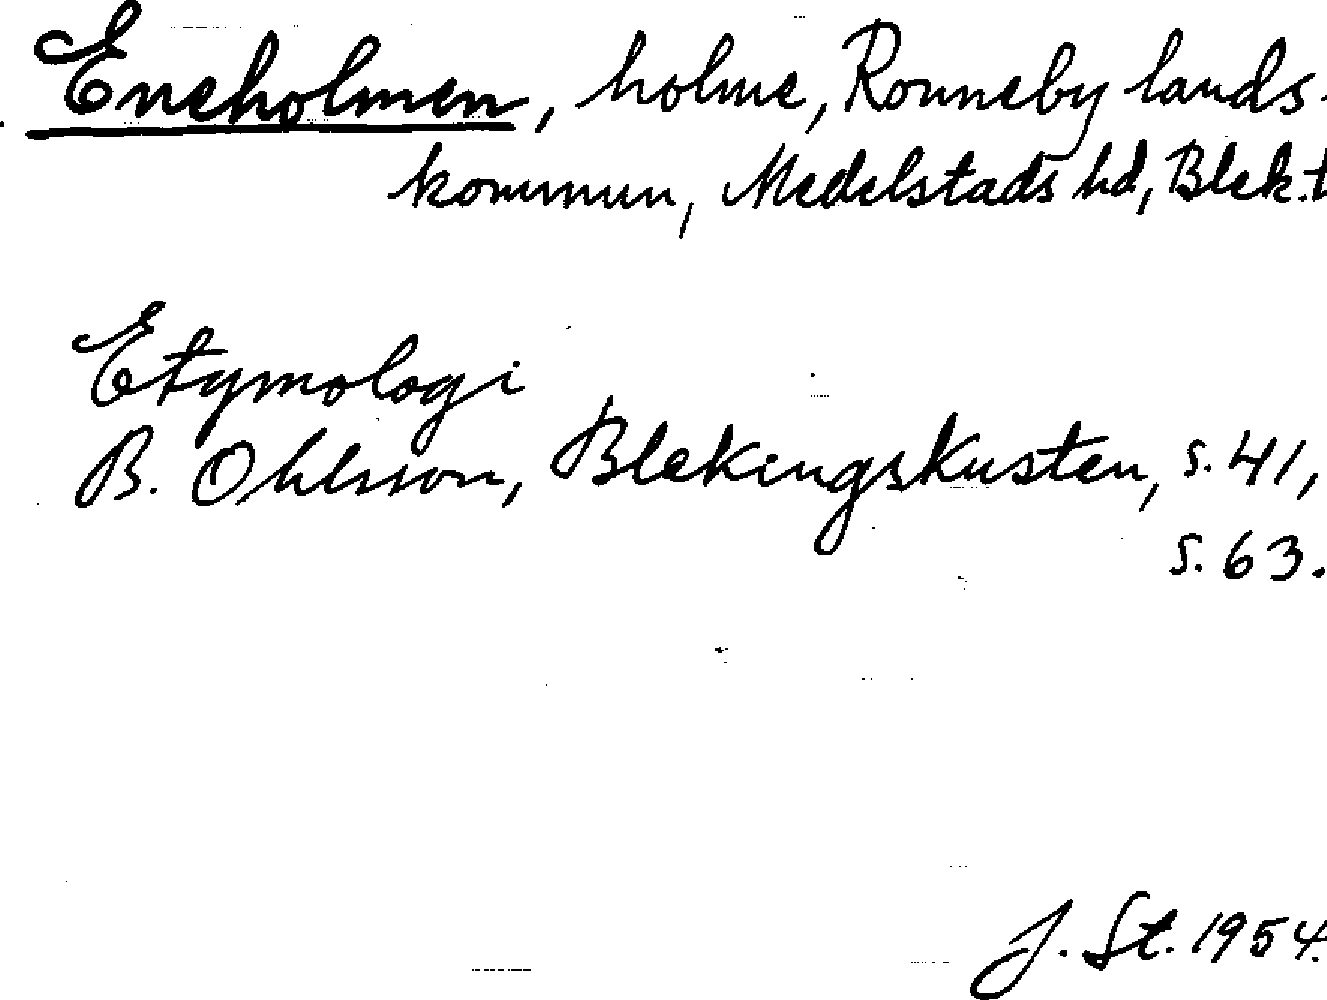 Eneholmen, holme, Ronneby lands-
kommun, Medelstads hd, Blek.
Etymologi
B. Ohlsson, Blekingskusten, s. 41,
s. 63.
J. St. 1954.